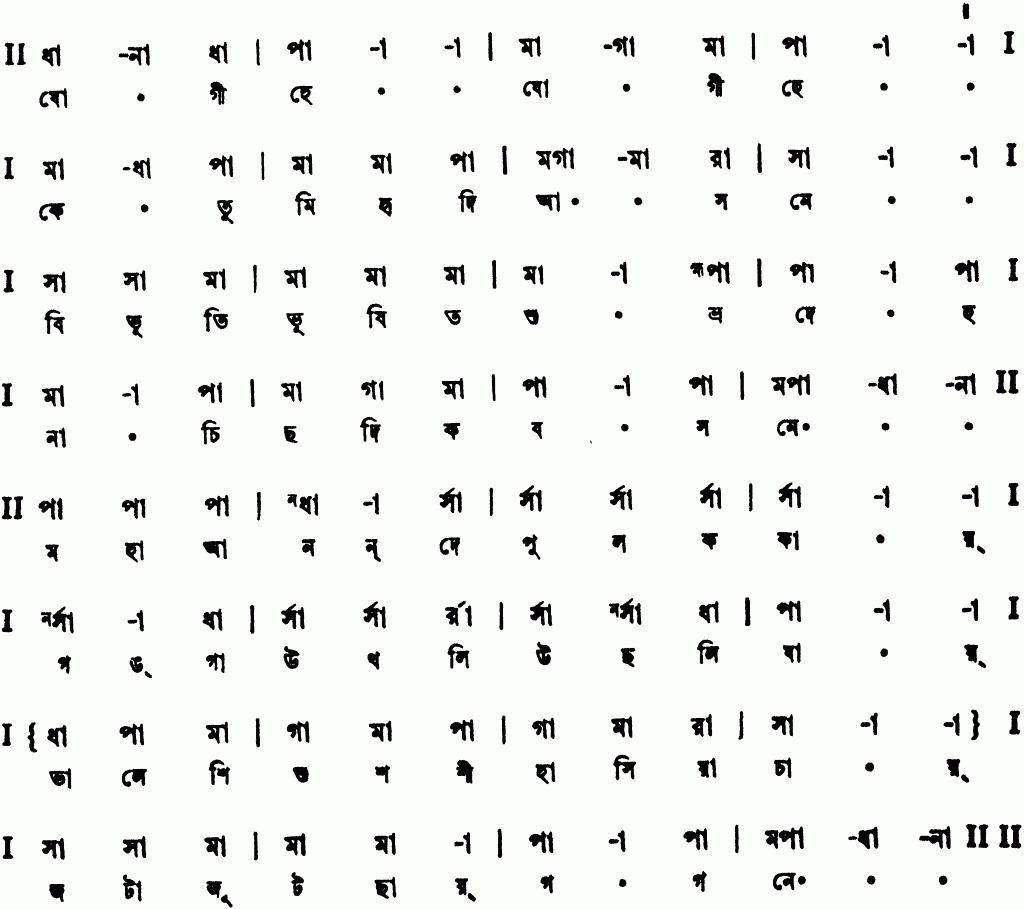 II ধা -না ধা | পা -া -া | মা -গা মা | পা -া -া I
যো • গী হে • • যো • গী হে • •
I মা -ধা পা | মা মা পা | মগা -মা রা | সা -া -া I
কে • তু মি হৃ দি আ• • স নে • •
I সা সা মা | মা মা মা | মা -া ক্ষপা | পা -া পা I
বি ভূ তি ভূ ষি ত শু • ভ্র দে • হ
I মা -া পা | মা গা মা | পা -া পা | মপা -ধা -না II
না • চি ছ দি ক ব • স নে• • •
II পা পা পা | নধা -া র্সা | র্সা র্সা র্সা | র্সা -া -া I
ম হা আ ন ন্ দে পু ল ক কা • য়্
I নর্সা -া ধা | র্সা র্সা র্রা | র্সা নর্সা ধা | পা -া -া I
গ ঙ্ গা উ থ লি উ ছ লি যা • য়্
I { ধা পা মা | গা মা পা | গা মা রা | সা -া -া } I
ভা লে শি শু শ শী হা সি য়া চা • য়্
I সা সা মা | মা মা -া | পা -া পা | মপা -ধা -না II II
জ টা জূ ট ছা য়্ গ • গ নে• • •